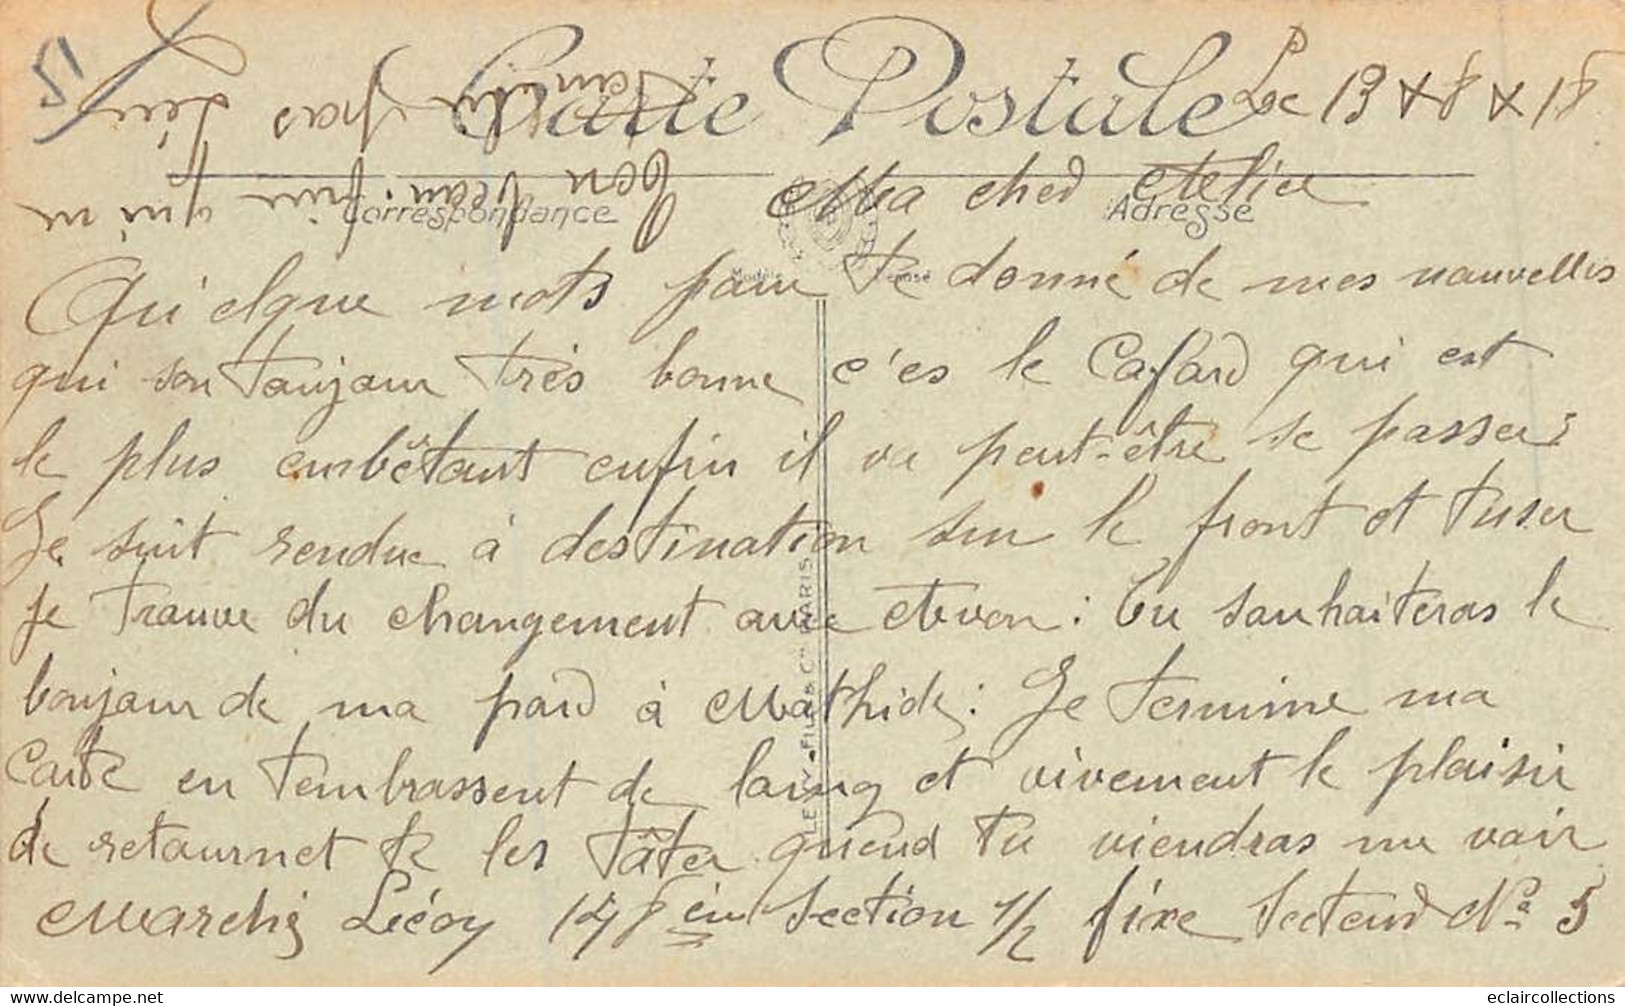 51
Carte Postale
Le 13 + 8 + 18
Correspondance
Adresse
Ma cher
Qu'elque mots pour te donné de mes nouvelles
qui son toujour très bonne c'es le Cafard qui est
le plus embêtant enfin il va peut-être se passer
Je suit rendue à destination sur le front et tuser
je trouve du changement avec : Tu souhaiteras le
boujour de ma pard à Mathide : Je termine ma
Carte en tembrassent de loing et vivement le plaisir
de retournet te les tâter quend tu viendras me voir
Marchis 148 èm section 1/2 fixe Secteur No 5
ton beau frire qui ne
pas
LEVY FILS & Cie PARIS
eclaircollections
www.delcampe.net